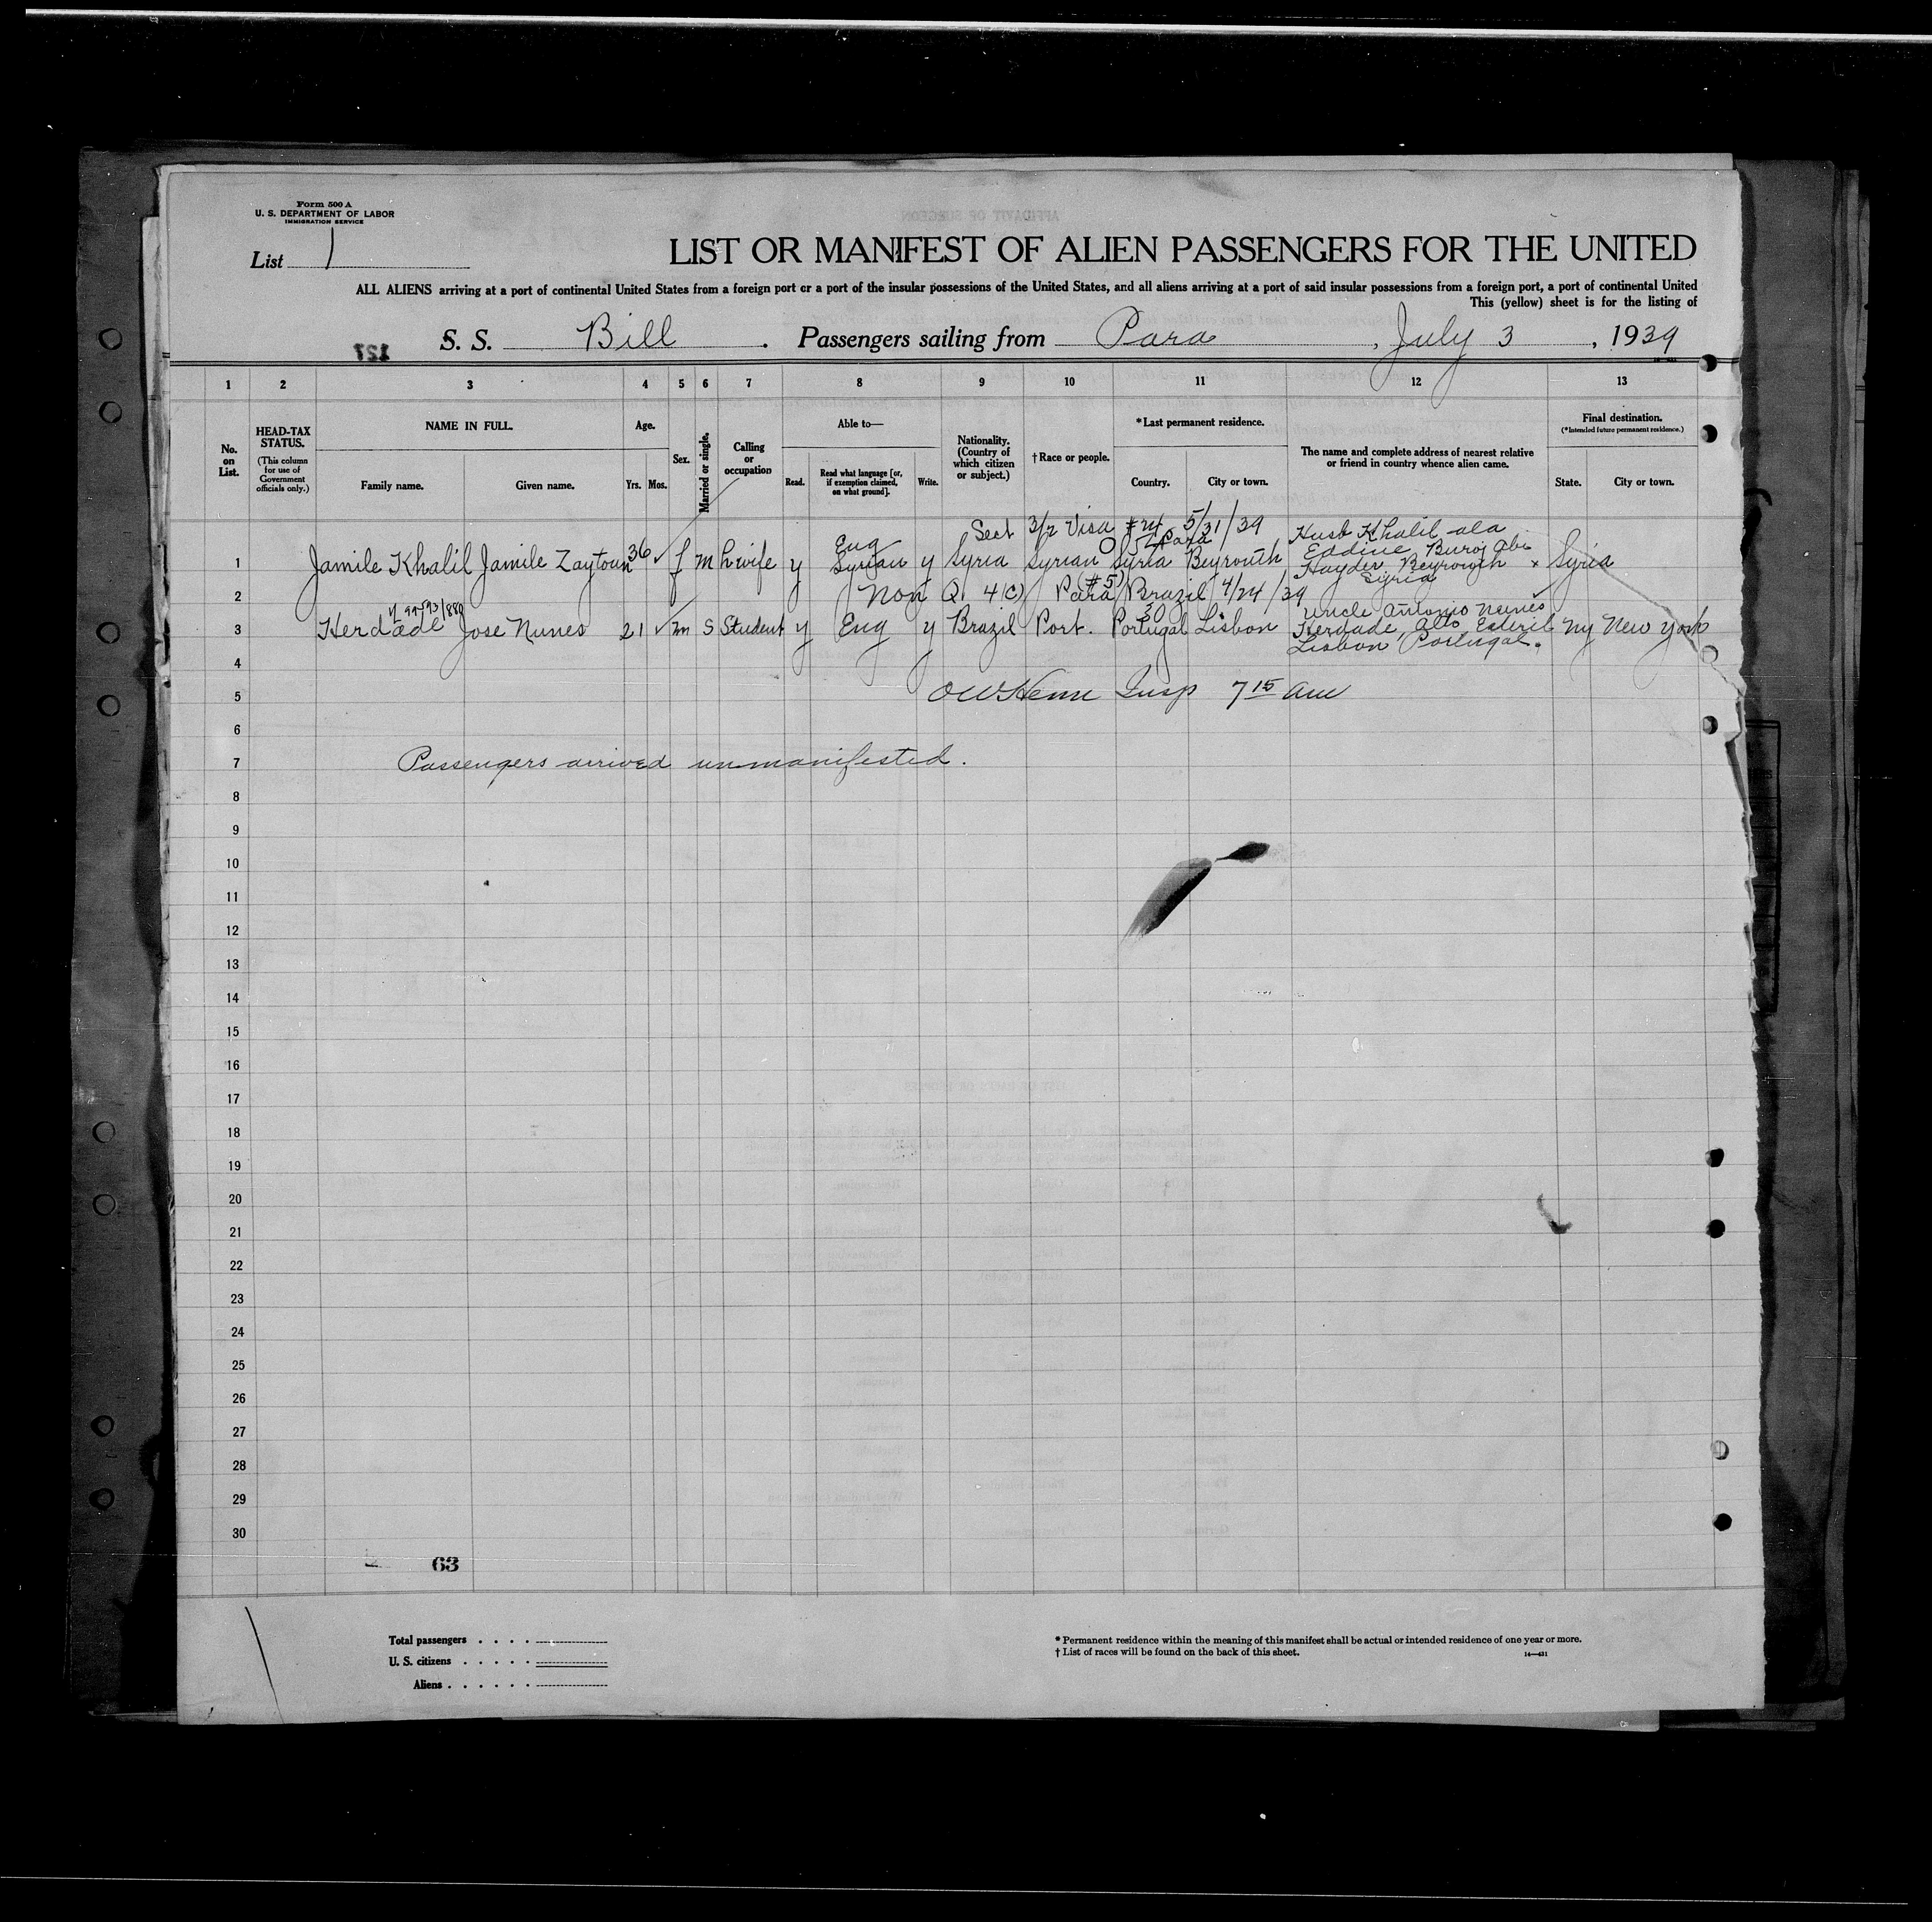 Form 500 A
U. S. DEPARTMENT OF LABOR
IMMIGRATION SERVICE
List 1
LIST OR MANIFEST OF ALIEN PASSENGERS FOR THE UNITED
ALL ALIENS arriving at a port of continental United States from a foreign port or a port of the insular possessions of the United States, and all aliens arriving at a port of said insular possessions from a foreign port, a port of continental United
This (yellow) sheet is for the listing of
S. S. Bill . Passengers sailing from Para , July 3 , 1939
127
1 2 3 4 5 6 7 8 9 10 11 12 13
No. on List.
HEAD-TAX STATUS.
(This column for use of Government officials only.)
NAME IN FULL.
Family name. Given name.
Age.
Yrs. Mos.
Sex.
Married or single.
Calling or occupation
Able to—
Read. Read what language [or, if exemption claimed, on what ground]. Write.
Nationality. (Country of which citizen or subject.)
†Race or people.
*Last permanent residence.
Country. City or town.
The name and complete address of nearest relative or friend in country whence alien came.
Final destination.
(*Intended future permanent residence.)
State. City or town.
Sect 3/2 Visa #24 5/31/39
Para
1 Jamile Khalil Jamile Zaytoun 36 f m hwife y Eng Syrian y Syria Syrian Syria Beyrouth Husb Khalil ala Eddine, Burj Abi Hayder, Beyrouth Syria x Syria
2 Non Q 4(c) (#5) Para Brazil 4/24/39
3 Herdade Jose Nunes 21 m S Student y Eng y Brazil Port. Portugal Lisbon Uncle Antonio Nunes Herdade, Alto Esteril Lisbon Portugal. NY New York
4
5 Insp 7 15 am
6
7 Passengers arrived unmanifested.
8
9
10
11
12
13
14
15
16
17
18
19
20
21
22
23
24
25
26
27
28
29
30
63
Total passengers . . . .
U. S. citizens . . . . .
Aliens . . . . . .
* Permanent residence within the meaning of this manifest shall be actual or intended residence of one year or more.
† List of races will be found on the back of this sheet.